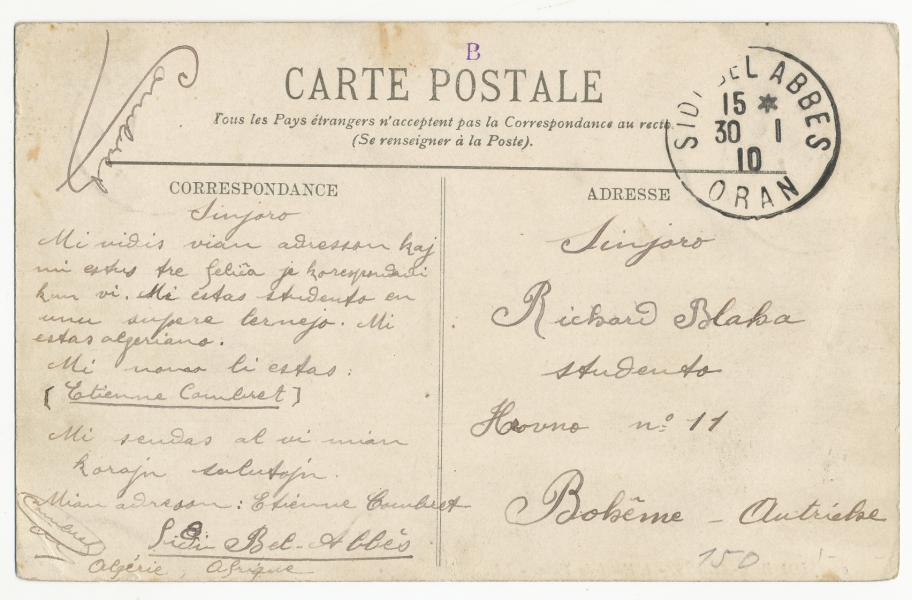 B
CARTE POSTALE
Tous les Pays étrangers n'acceptent pas la Correspondance au recto.
(Se renseigner à la Poste).
SIDI BEL ABBES
15 *
30 1
10
ORAN
CORRESPONDANCE
Sinjoro
Mi vidis vian adresson kaj
mi estus tre feliĉa je korespondadi
kun vi. Mi estas studento en
unu supere lernejo. Mi
estas algeriano.
Mi nomo li estas:
[Etienne Combret]
Mi sendas al vi mian
korajn salutojn.
Mian adresson: Etienne Combret
Sidi Bel-Abbès
Algérie, Afrique
ADRESSE
Sinjoro
Richard Blaha
studento
Hrovno nº 11
Bohême - Autriche
150